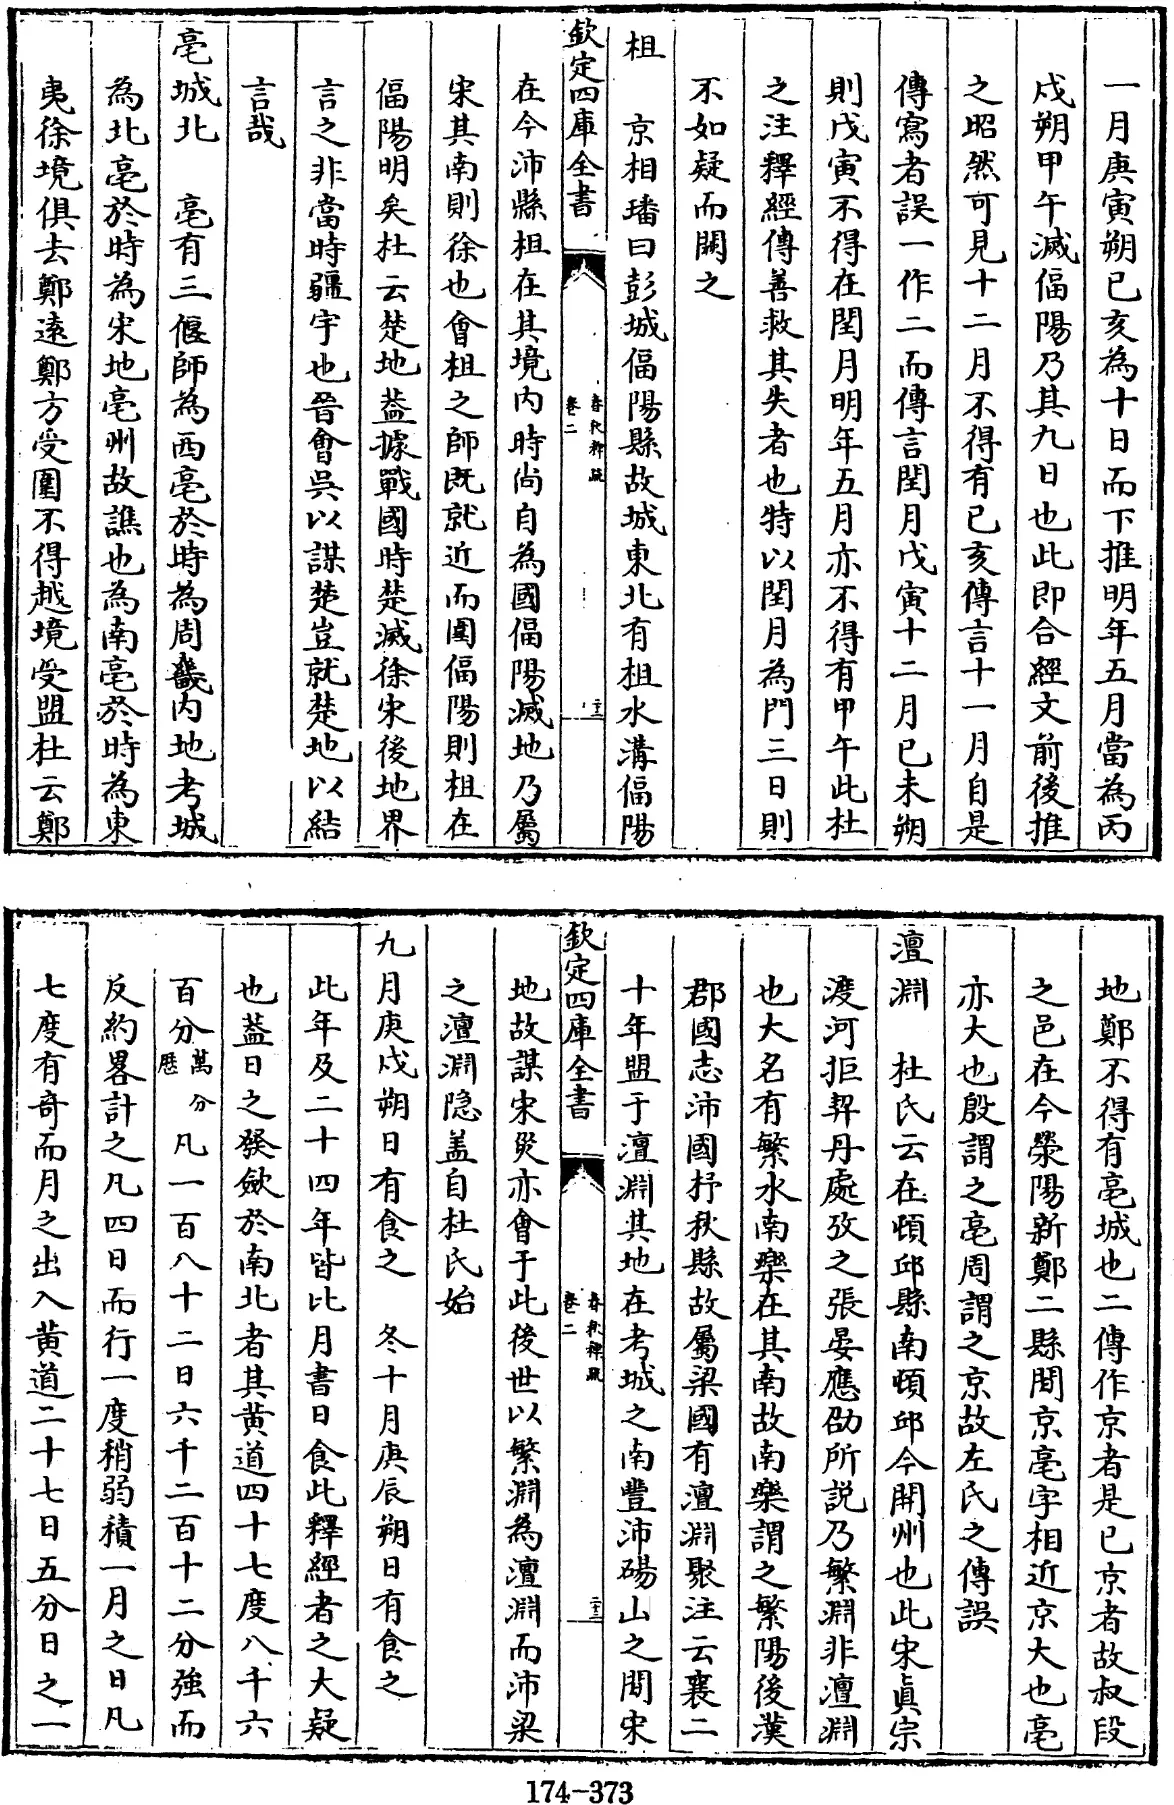 一月庚寅朔已亥為十日而下推明年五月當為丙
戍朔甲午滅偪陽乃其九日也此即合經文前後推
之昭然可見十二月不得有已亥傳言十一月自是
傳寫者誤一作二而傳言閏月戊寅十二月已未朔
則戊寅不得在閏月明年五月亦不得有甲午此杜
之注釋經傳善救其失者也特以閏月為門三日則
不如疑而闕之
柤　京相璠曰彭城偪陽縣故城東北有柤水溝偪陽
欽定四庫全書
春秋稗疏
卷二
二十三
在今沛縣柤在其境内時尚自為國偪陽滅地乃屬
宋其南則徐也會柤之師既就近而圍偪陽則柤在
偪陽明矣杜云楚地葢據戰國時楚滅徐宋後地界
言之非當時疆宇也晉會吳以謀楚豈就楚地以結
言哉
亳城北　亳有三偃師為西亳於時為周畿内地考城
為北亳於時為宋地亳州故譙也為南亳於時為東
夷徐境俱去鄭遠鄭方受圍不得越境受盟杜云鄭
地鄭不得有亳城也二傳作京者是已京者故叔段
之邑在今滎陽新鄭二縣間京亳字相近京大也亳
亦大也殷謂之亳周謂之京故左氏之傳誤
澶淵　杜氏云在頓邱縣南頓邱今開州也此宋真宗
渡河拒契丹處攷之張晏應劭所説乃繁淵非澶淵
也大名有繁水南樂在其南故南樂謂之繁陽後漢
郡國志沛國抒秋縣故屬梁國有澶淵聚注云襄二
十年盟于澶淵其地在考城之南豐沛碭山之間宋
欽定四庫全書
春秋稗疏
卷二
二十三
地故謀宋災亦會于此後世以繁淵為澶淵而沛梁
之澶淵隐盖自杜氏始
九月庚戍朔日有食之　冬十月庚辰朔日有食之
此年及二十四年皆比月書日食此釋經者之大疑
也葢日之發斂於南北者其黄道四十七度八千六
百分萬分厯凡一百八十二日六千二百十二分強而
反約畧計之凡四日而行一度稍弱積一月之日凡
七度有奇而月之出入黄道二十七日五分日之一
174-373